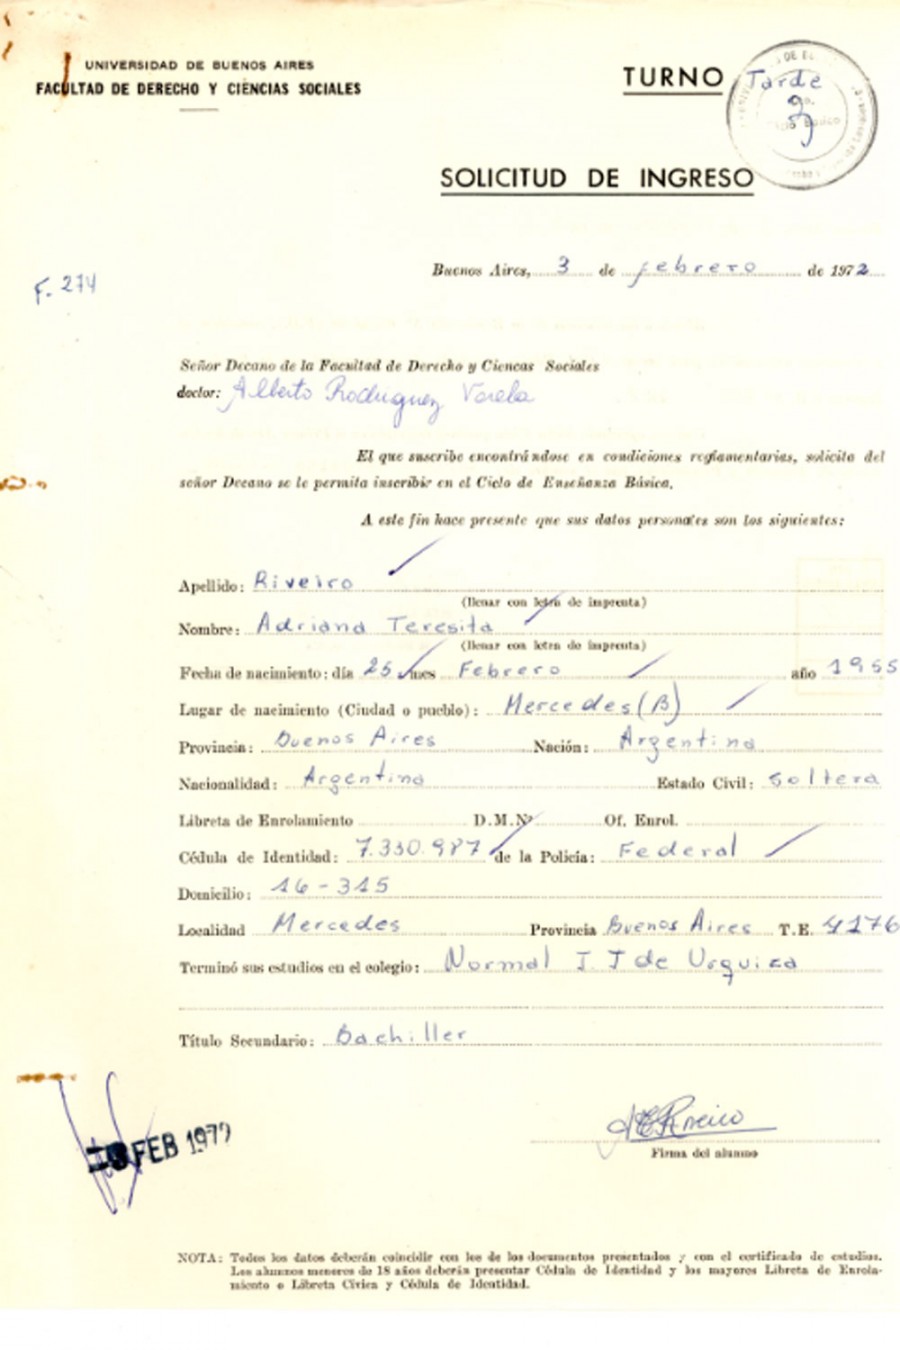 UNIVERSIDAD DE BUENOS AIRES
FACULTAD DE DERECHO Y CIENCIAS SOCIALES
TURNO Tarde
SOLICITUD DE INGRESO
Buenos Aires, 3 de febrero de 1972
F. 274
Señor Decano de la Facultad de Derecho y Ciencas Sociales
doctor: Alberto Rodriguez Varela
El que suscribe encontrándose en condiciones reglamentarias, solicita del
señor Decano se le permita inscribir en el Ciclo de Enseñanza Básica.
A este fin hace presente que sus datos personales son los siguientes:
Apellido: Riveiro
(llenar con letra de imprenta)
Nombre: Adriana Teresita
(llenar con letra de imprenta)
Fecha de nacimiento: día 25 mes Febrero año 1955
Lugar de nacimiento (Ciudad o pueblo): Mercedes (B)
Provincia: Buenos Aires Nación: Argentina
Nacionalidad: Argentina Estado Civil: Soltera
Libreta de Enrolamiento D.M.Nº Of. Enrol.
Cédula de Identidad: 7.330.987 de la Policía: Federal
Domicilio: 16-315
Localidad Mercedes Provincia Buenos Aires T.E. 4176
Terminó sus estudios en el colegio: Normal J. J de Urquiza
Título Secundario: Bachiller
FEB 1972
Firma del alumno
NOTA: Todos los datos deberán coincidir con los de los documentos presentados y con el certificado de estudios.
Los alumnos menores de 18 años deberán presentar Cédula de Identidad y los mayores Libreta de Enrola-
miento o Libreta Cívica y Cédula de Identidad.